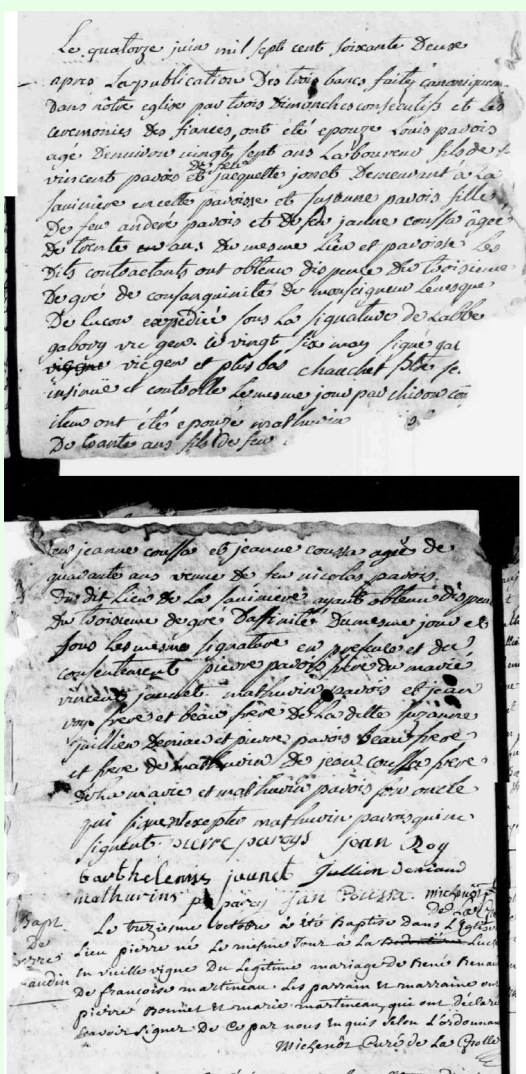 Le quatorze juin mil sept cent soixante Deuse
apres La publication Des trois bancs faitts canoniquem
Dans nôtre eglise par trois Dimanches consecutifs et Les
ceremonies des fiances, ont eté epouze Louis parois
agé Denniron vingty sept ans Laboureur fils de
vincent parois et De feu jacquette jonet Demeurant a La
sauiniere en cette paroisse et Susanne parois fille
De feu anderé parois et De feu janne coussa âgee
De trente ans De mesme Lieu et paroisse Les
Dits contractants ont obtenu dispence Du troisieme
Degré de consanguinités de monseigneur Leuesque
De Lucon expédiée sous La signature de Labbe
gaboury vic gen le vingt six may signe gas
vic gen et plus bas chauchet ptre se
insinué et controllé Le mesme jour par
ont étés epouzé mathurin
De trante ans fils De feu
feu jeanne coussa et jeanne coussa agée de
quarante ans veuue de feu nicolas parois,
Du dit Lieu de La sauiniere ayant obtenu Dispen
Du troisieme degré Daffinité Du mesme jour et
sous Les mesme signature en presence et du
consentement pierre parois frere du marié
vincent jaunet mathurin parois et jean
roy frere et beau frere de La ditte Suzanne
jullien Deriaud et pierre parois beau frere
et frere de mathurin De jean coussa frere
De La mariee et mathurin parois son oncle
qui signent excepté mathurin parois qui ne
signent. pierre paroys Jean Roy
barthelemy jaunet Jullien Deriaud
mathurins paroy jan Coussa. michenôt
De La
Bapt.
De
Pierre
audin
Le trezisme octobre à été Baptisé Dans L'Eglise
Lieu pierre né Le mesme Jour à La
en vieille vigne Du Legitime mariage de René Renau
De francoise martineau. Les parrain et marraine on
pierre Bonnet et marie martineau, qui ont Déclare
scavoir signer De Ce par nous Enquis selon L'ordonnan
Michenôt Curé de La Grolle